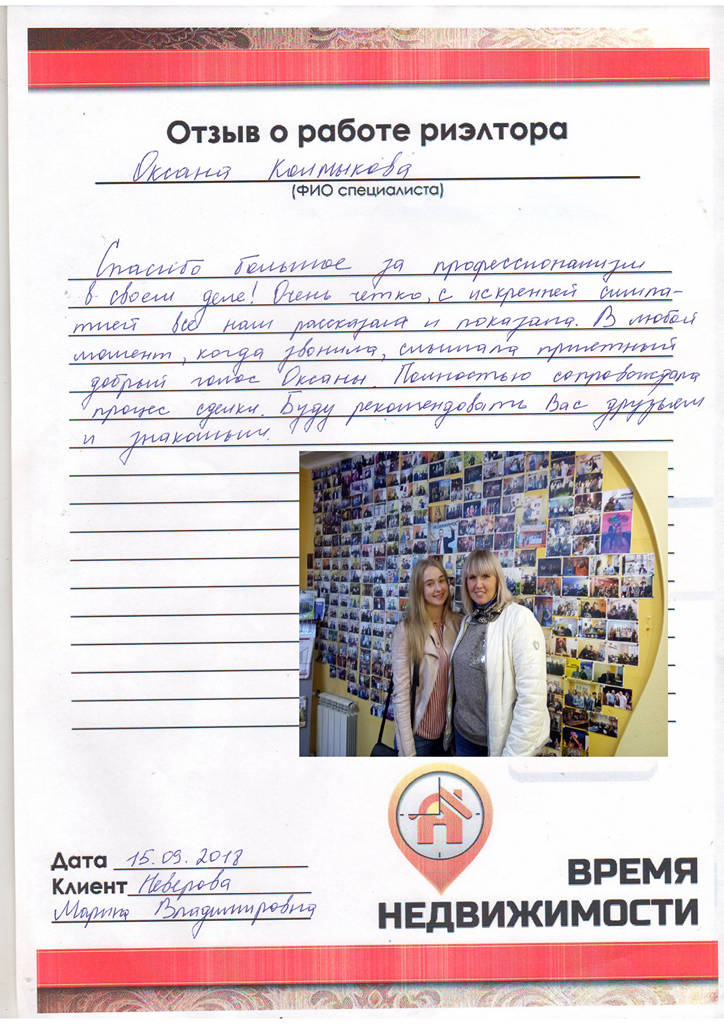 Отзыв о работе риэлтора
Оксана Колмыкова
(ФИО специалиста)
Спасибо большое за профессионализм
в своем деле! Очень четко, с искренней симпа-
тией все нам рассказала и показала. В любой
момент, когда звонила, слышала приятный
добрый голос Оксаны. Полностью сопровождала
процес сделки. Буду рекомендовать Вас друзьям
и знакомым.
Дата 15.09.2018
Клиент Неверова
Марина Владимировна
ВРЕМЯ
НЕДВИЖИМОСТИ